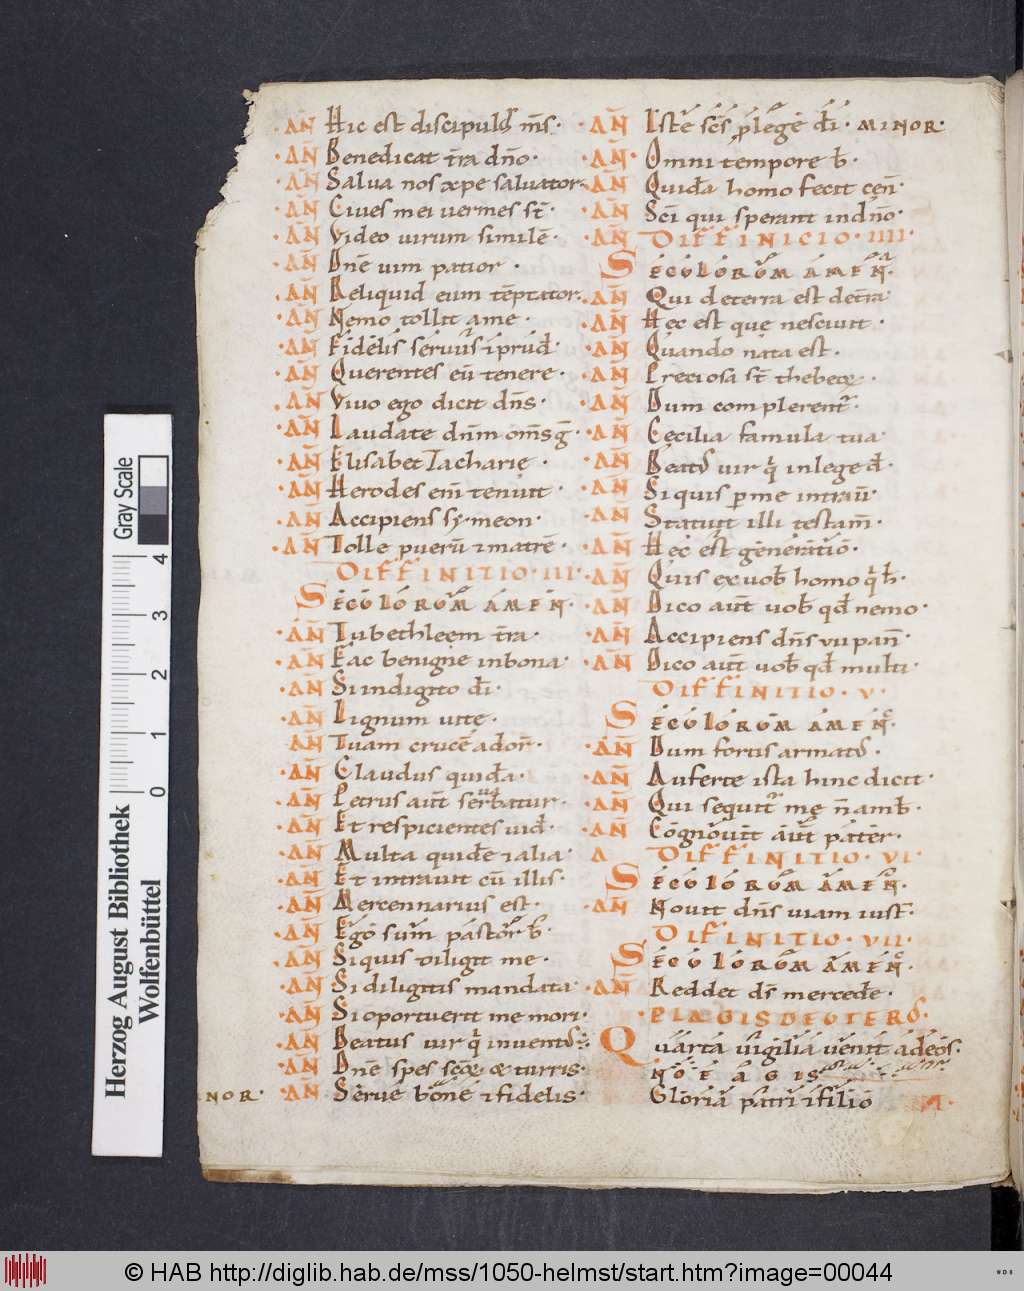 · AN̄ Hic est discipulꝰ m̅s·
· AN̄ Benedicat t̅ra dn̅o·
· AN̄ Salua nos xp̅e saluator·
· AN̄ Ciues mei uermes st̅·
· AN̄ Video uirum similē·
· AN̄ Dn̅e uim patior ·
· AN̄ Reliquid eum tēptator·
· AN̄ Nemo tollit a me ·
· AN̄ Fidelis seruus ⁊ prud̅·
· AN̄ Querentes eū tenere ·
· AN̄ Viuo ego dicit dn̅s·
· AN̄ Laudate dn̅m om̅s g̅·
· AN̄ Elisabet Zacharię ·
· AN̄ Herodes eni̅ tenuit ·
· AN̄ Accipiens sẏmeon·
· AN̄ Tolle puerū ⁊ matrē·
DIFFINITIO·III·
SECULORUM AMEN·
· AN̄ Tu bethleem t̅ra ·
· AN̄ Fac benigne in bona ·
· AN̄ Si in digito d̅i·
· AN̄ Lignum uite·
AN̄ Tuam crucē ador̅·
· AN̄ Claudus quida̅·
· AN̄ Petrus aut̅ seruabatur·
· AN̄ Et respicientes uid̅·
· AN̄ Multa quide̅ ⁊ alia·
· AN̄ Et intrauit cū illis·
· AN̄ Mercennarius est·
· AN̄ Ego sum pastor b̅·
· AN̄ Si quis diligit me·
· AN̄ Si diligitis mandata·
· AN̄ Si oportuerit me mori·
· AN̄ Beatus uir q̍ inuentꝰ·
· AN̄ Dn̅e spes sc̅oꝝ & turris·
NOR· AN̄ Serue bone ⁊ fidelis·
· AN̄ Iste sc̅s p̅ lege d̅i· MINOR·
· AN̄· Omni tempore b̅·
· AN̄ Quida̅ homo fecit cen̅·
· AN̄ Sc̅i qui sperant in dn̅o·
· AN̄ DIFFINICIO·IIII·
SECULORUM AMEN·
Qui de terra est de t̅ra
· AN̄ Hec est que nesciuit ·
· AN̄ Quando nata est·
· AN̄ Preciosa st̅ thebeoꝝ·
· AN̄ Dum complerent᷑·
· AN̄ Cecilia famula tua·
· AN̄ Beatꝰ uir q̍ in lege d̅·
· AN̄ Si quis p̱ me intrau̅·
· AN̄ Statuit illi testam̅·
· AN̄ Hec est generatio̅·
· AN̄ Quis ex uob̅ homo q̍ h̅·
· AN̄ Dico aut̅ uob̅ qd̅ nemo·
· AN̄ Accipiens dn̅s v pan̅·
· AN̄ Dico aut̅ uob̅ qd̅ multi·
DIFFINITIO·V·
SECULORUM AMEN·
· AN̄ Dum fortis armatꝰ·
· AN̄ Auferte ista hinc dicit·
· AN̄ Qui sequit᷑ me n̅ amb̅·
· AN̄ Cognouit aut̅ pater·
A DIFFINITIO·VI·
SECULORUM AMEN·
· AN̄ Nouit dn̅s uiam iust̅·
DIFFINITIO·VII·
SECULORUM AMEN·
· AN̄ Reddet ds̅ mercede̅·
· PLAGIS DEUTERꝰ·
Quarta uigilia uenit ad eos·
NOEAGIS
Gloria patri ⁊ filio
Herzog August Bibliothek
Wolfenbüttel
0 1 2 3 4
Gray Scale
© HAB http://diglib.hab.de/mss/1050-helmst/start.htm?image=00044